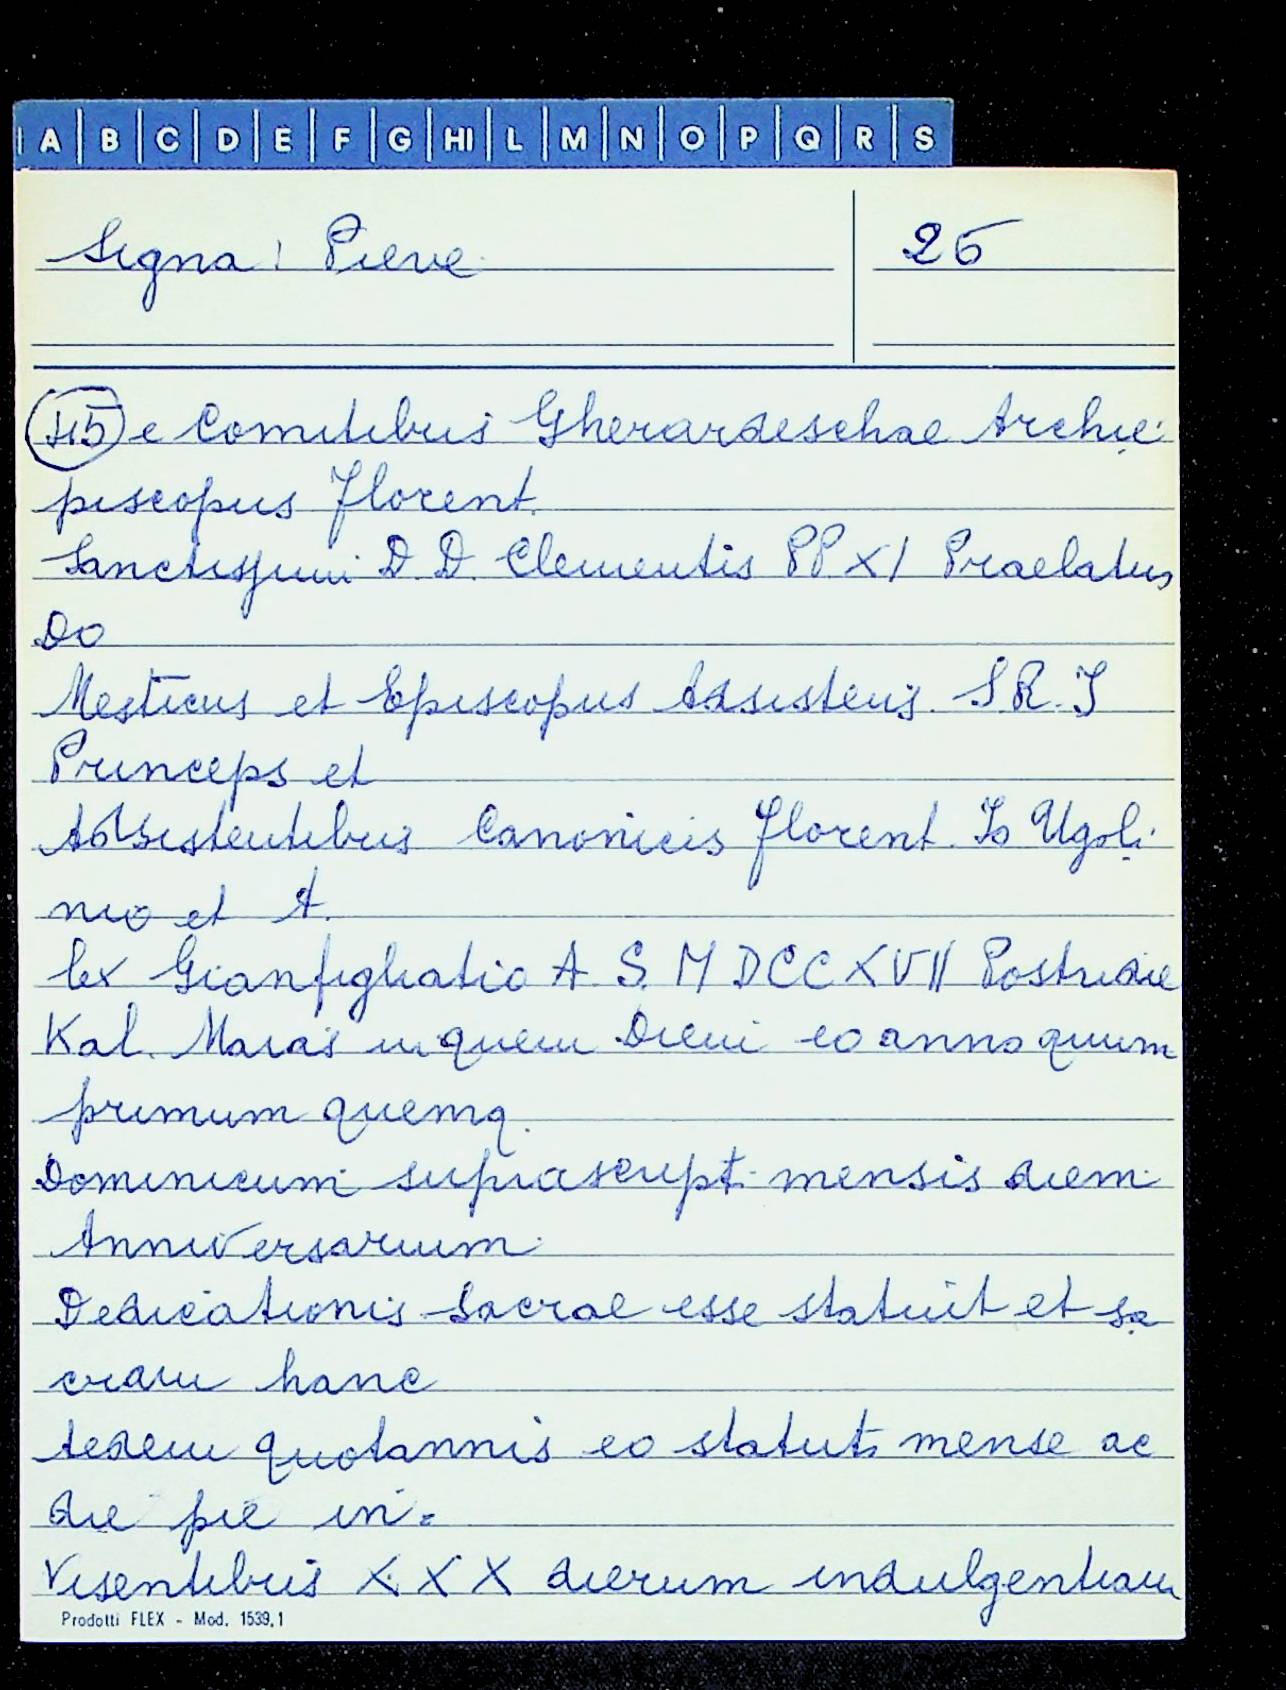 A B C D E F G HI L M N O P Q R S
Signa: Pieve 26
e Comitibus Gherardeschae Archie-
piscopus Florent.
Sanctissimi D. D. Clementis PP XI Praelatus
Do
Mesticus et Episcopus Assistens S R. I
Princeps et
Adsistentibus Canonicis Florent. Io Ugoli-
nio et A.
lex Gianfigliatio A. S. MDCCXVII Postridie
Kal. Maias in quem Diem eo anno quum
primum quemq.
Dominicum suprascript. mensis diem
Anniversarium
Dedicationis Sacrae esse statuit et sa
cram hanc
Aedem quotannis eo statut. mense ac
die pie in=
Visentibus XXX dierum indulgentiam
Prodotti FLEX - Mod. 1539,1